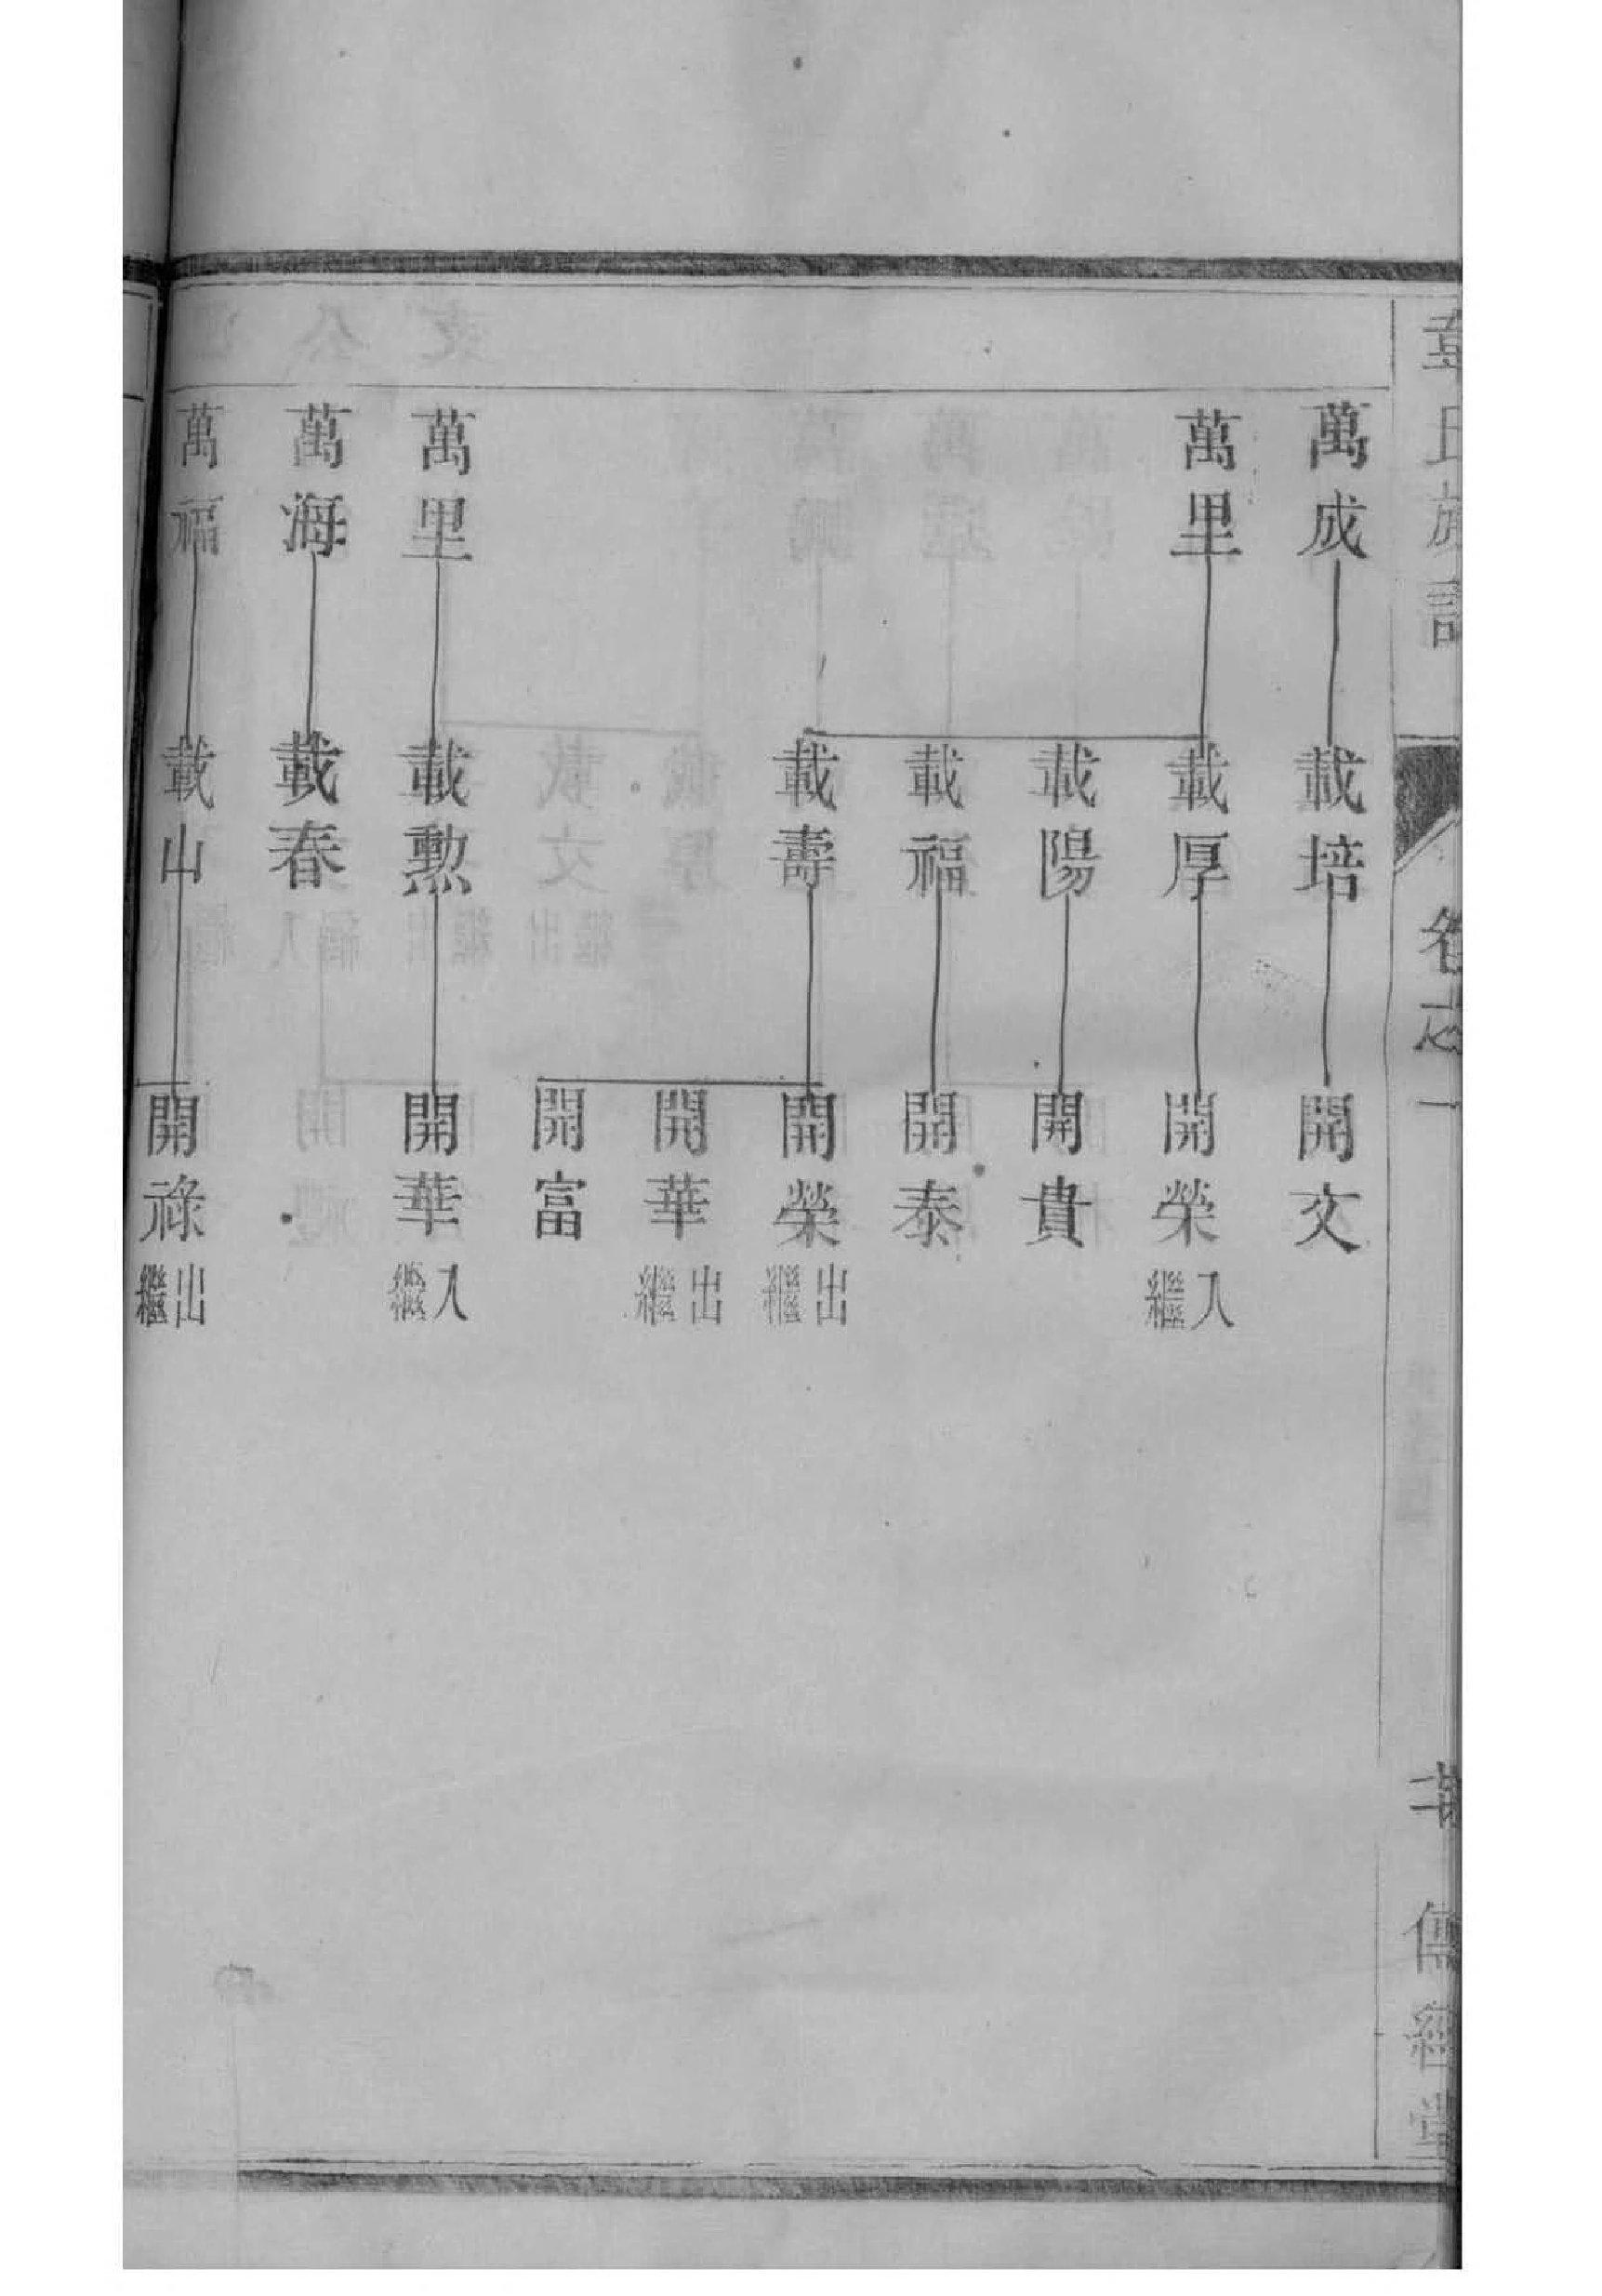 章氏族譜
卷之一
傳經堂
萬成
載培
開文
萬里
載厚
開榮 入繼
載陽
開貴
載福
開泰
載壽
開榮 出繼
開華 出繼
開富
萬里
載勲
開華 入繼
萬海
載春
萬福
載山
開祿 出繼